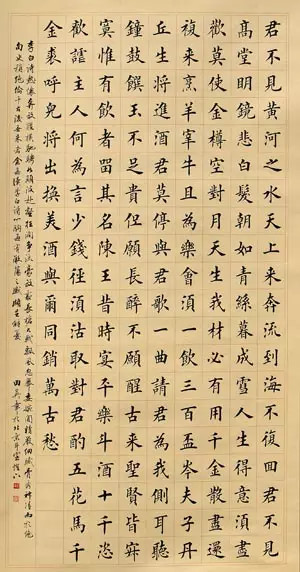 君不見黃河之水天上來奔流到海不復回君不見
高堂明鏡悲白髮朝如青絲暮成雪人生得意須盡
歡莫使金樽空對月天生我材必有用千金散盡還
複來烹羊宰牛且為樂會須一飲三百杯岑夫子丹
丘生將進酒君莫停與君歌一曲請君為我側耳聽
鐘鼓饌玉不足貴但願長醉不願醒古來聖賢皆寂
寞惟有飲者留其名陳王昔時宴平樂斗酒十千恣
歡謔主人何為言少錢徑須沽取對君酌五花馬千
金裘呼兒將出換美酒與爾同銷萬古愁
李白詩
田英章於北京